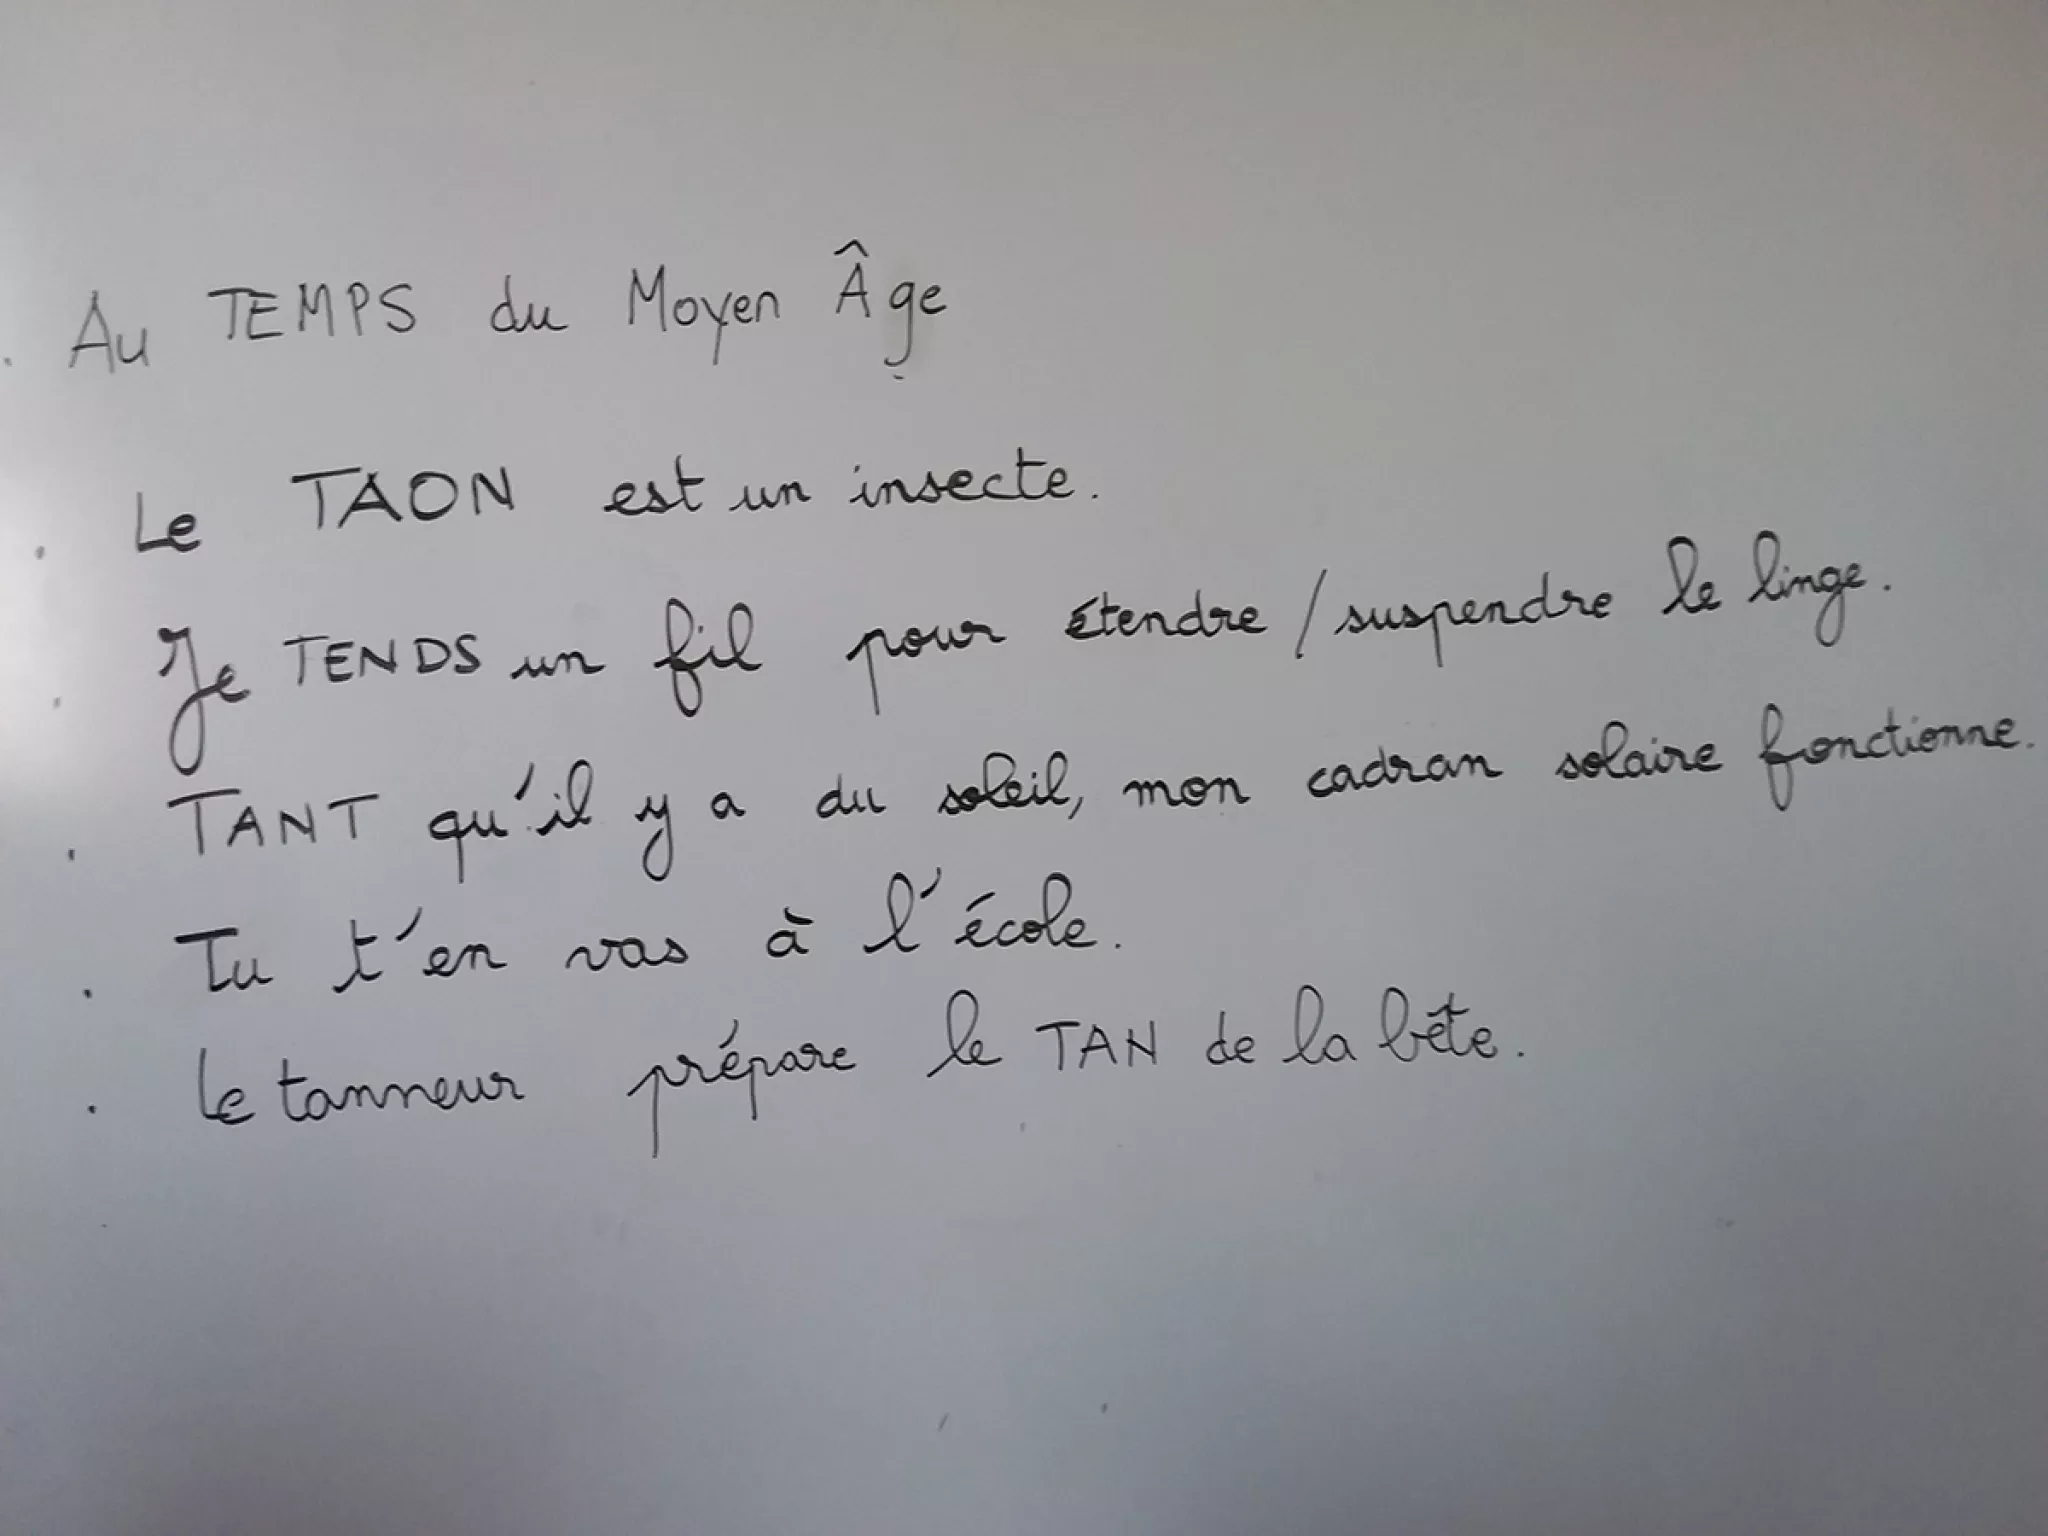 . Au TEMPS du Moyen Âge
. Le TAON est un insecte.
. Je TENDS un fil pour étendre / suspendre le linge.
. TANT qu'il y a du soleil, mon cadran solaire fonctionne.
. Tu t'en vas à l'école.
. Le tanneur prépare le TAN de la bête.